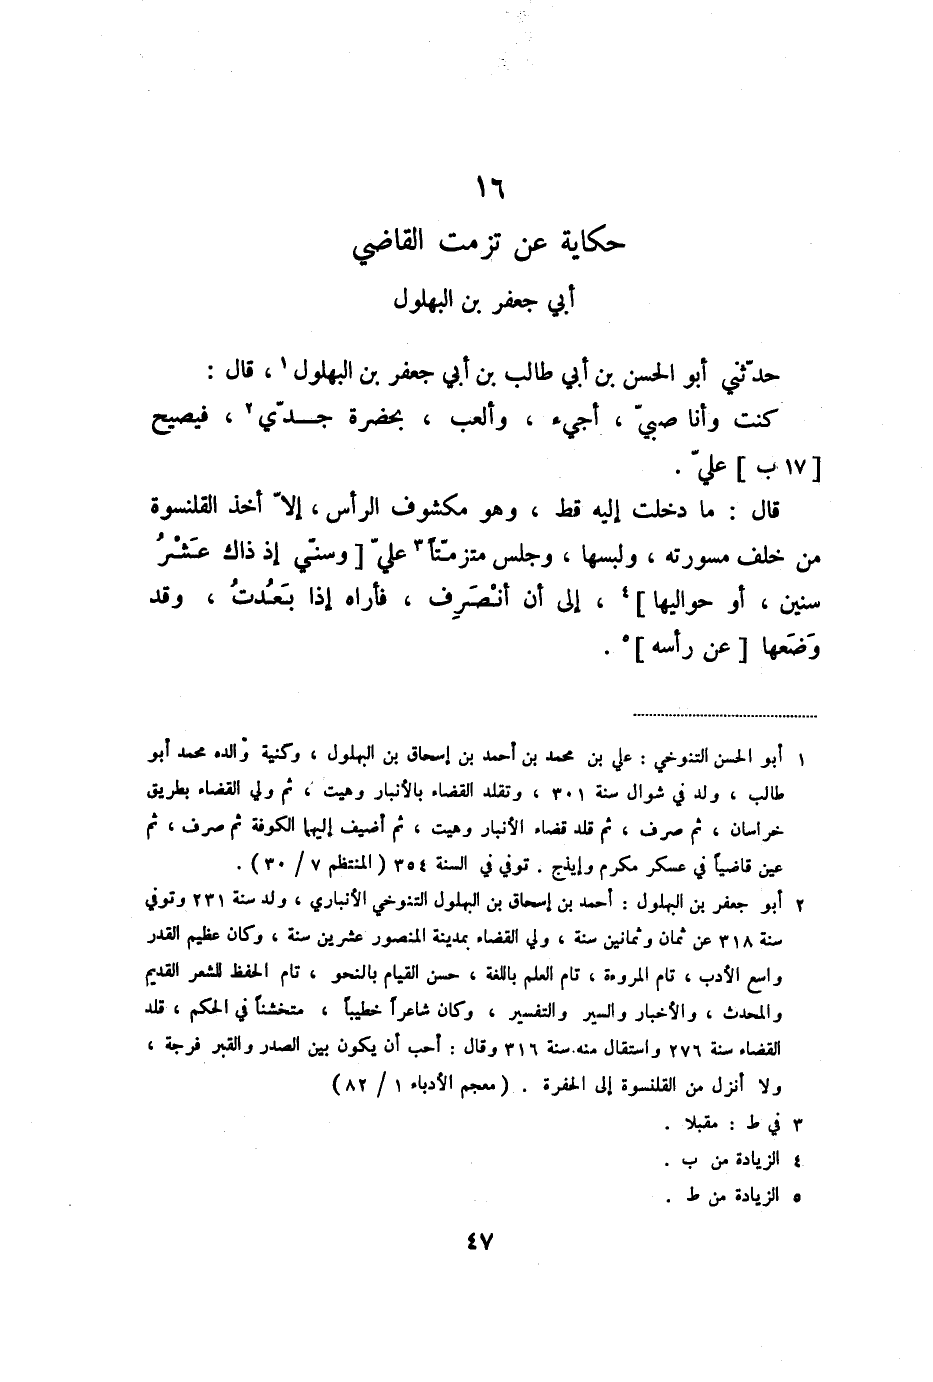 ١٦
حكاية عن تزمت القاضي
أبي جعفر بن البهلول
حدّثني أبو الحسن بن أبي طالب بن أبي جعفر بن البهلول ١ ، قال :
كنت وأنا صبيّ ، أجيء ، وألعب ، بحضرة جـــدّي ٢ ، فيصيح
[ ١٧ ب ] عليّ .
قال : ما دخلت إليه قط ، وهو مكشوف الرأس ، إلاّ أخذ القلنسوة
من خلف مسورته ، ولبسها ، وجلس متزمّتاً ٣ عليّ [ وسنّي إذ ذاك عَشْرُ
سنين ، أو حواليها ] ٤ ، إلى أن أنْصَرِف ، فأراه إذا بَعُدتُ ، وقد
وَضَعها [ عن رأسه ] ٥ .
١ أبو الحسن التنوخي : علي بن محمد بن أحمد بن إسحاق بن البهلول ، وكنية والده محمد أبو
طالب ، ولد في شوال سنة ٣٠١ ، وتقلد القضاء بالأنبار وهيت ، ثم ولي القضاء بطريق
خراسان ، ثم صرف ، ثم قلد قضاء الأنبار وهيت ، ثم أضيف إليها الكوفة ثم صرف ، ثم
عين قاضياً في عسكر مكرم وإيذج . توفي في السنة ٣٥٤ ( المنتظم ٧ / ٣٠ ) .
٢ أبو جعفر بن البهلول : أحمد بن إسحاق بن البهلول التنوخي الأنباري ، ولد سنة ٢٣١ وتوفي
سنة ٣١٨ عن ثمان وثمانين سنة ، ولي القضاء بمدينة المنصور عشرين سنة ، وكان عظيم القدر
واسع الأدب ، تام المروءة ، تام العلم باللغة ، حسن القيام بالنحو ، تام الحفظ للشعر القديم
والمحدث ، والأخبار والسير والتفسير ، وكان شاعراً خطيباً ، متخشناً في الحكم ، قلد
القضاء سنة ٢٧٦ واستقال منه سنة ٣١٦ وقال : أحب أن يكون بين الصدر والقبر فرجة ،
ولا أنزل من القلنسوة إلى الحفرة . ( معجم الأدباء ١ / ٨٢ )
٣ في ط : مقبلا .
٤ الزيادة من ب .
٥ الزيادة من ط .
٤٧